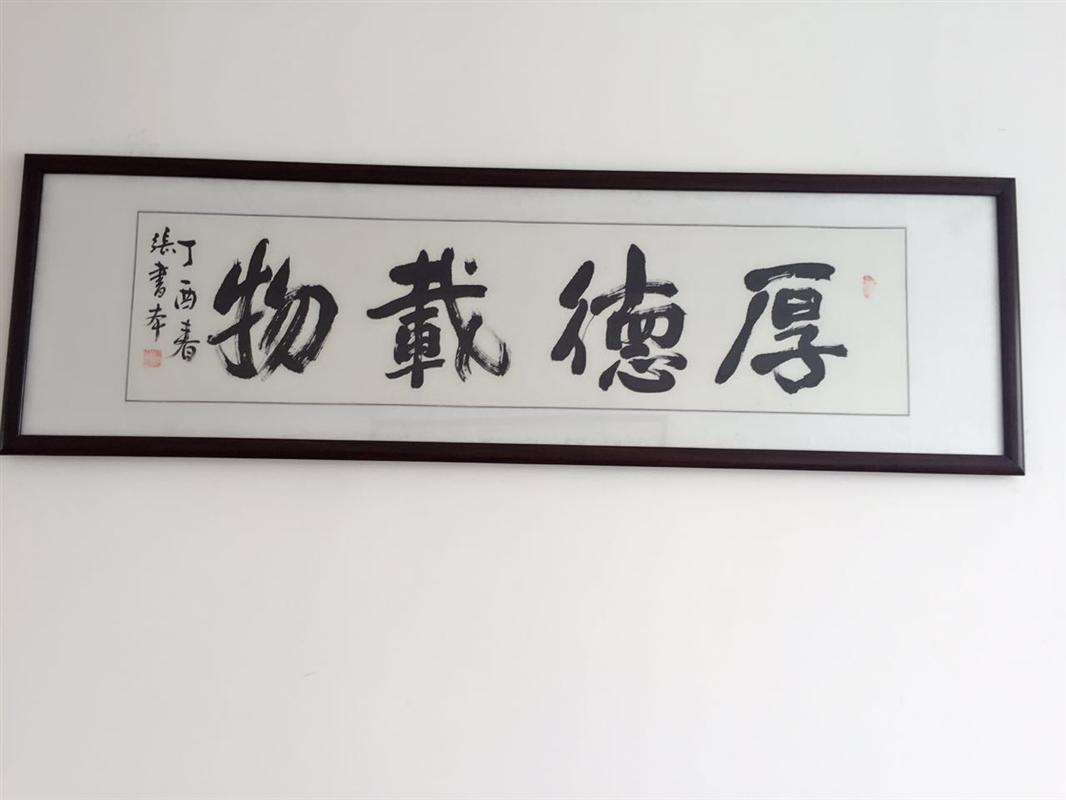 厚德載物
丁酉春
張書本